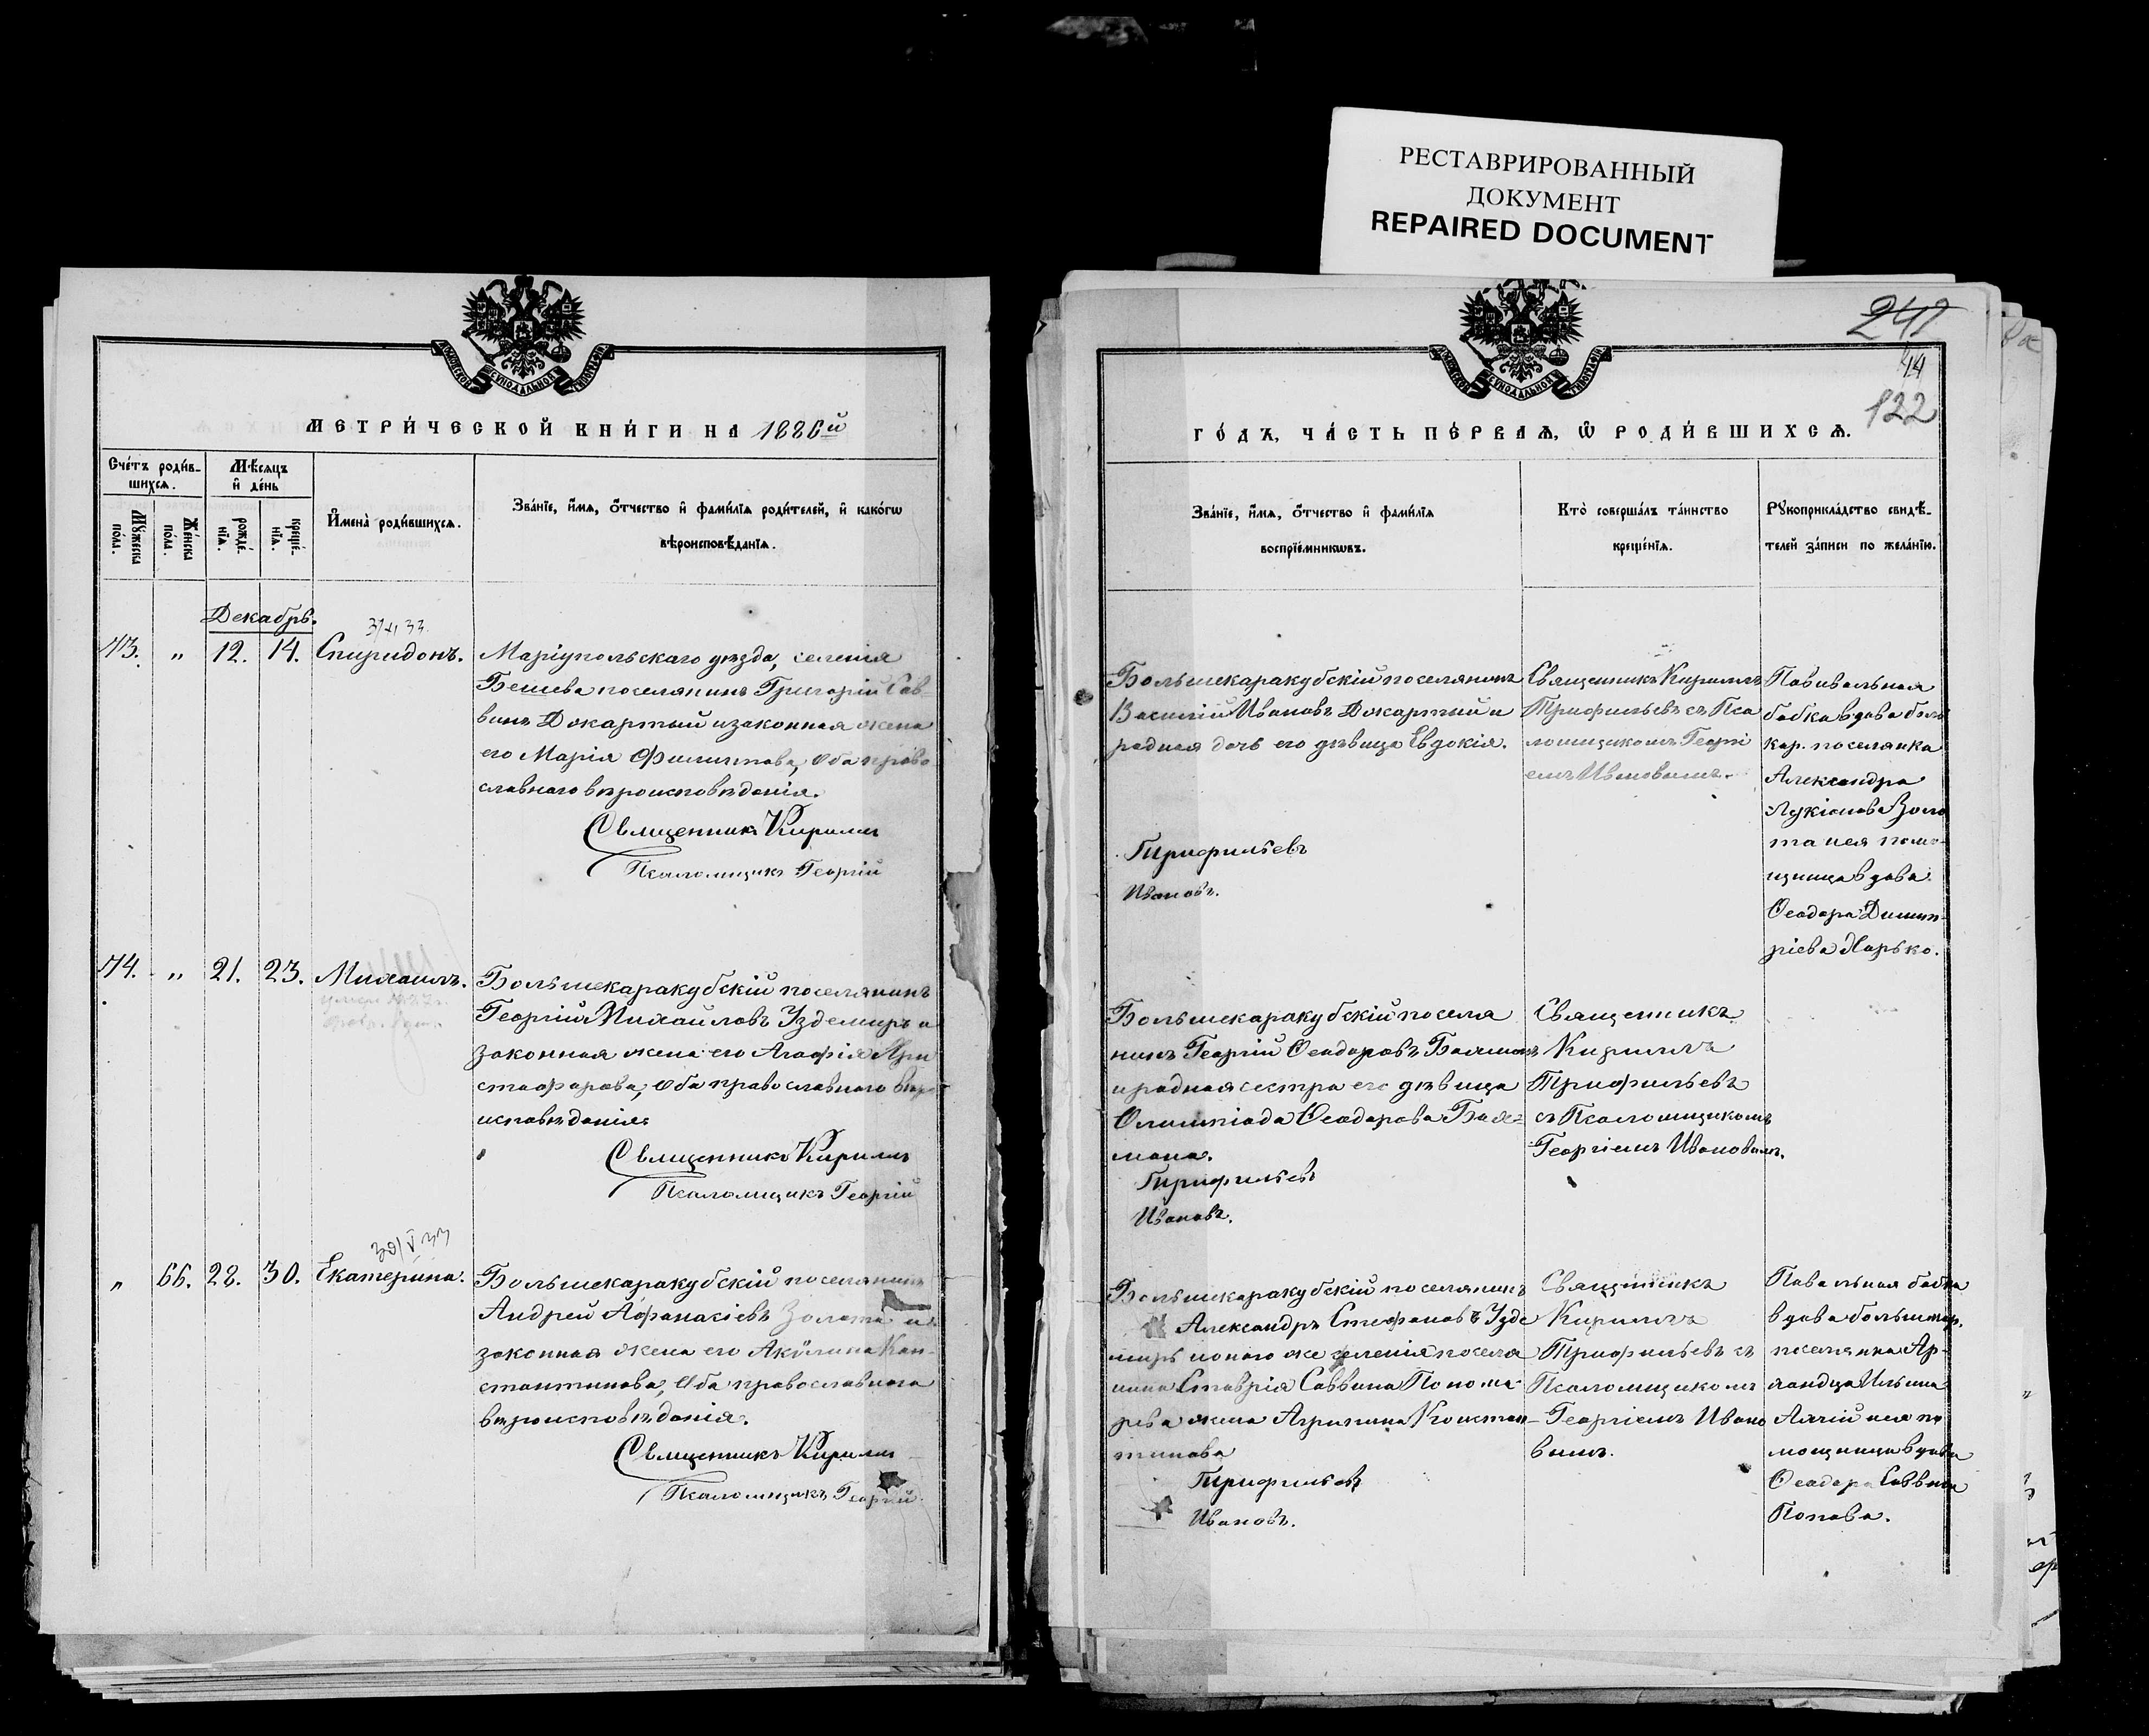 РЕСТАВРИРОВАННЫЙ
ДОКУМЕНТ
REPAIRED DOCUMENT
МЕТРИ́ЧЕСКОЙ КНИ́ГИ НА 1886й
Сче́тъ роди́в-
шихсѧ.
Мѣ́сѧцъ
и҆ де́нь
Мꙋ́жеска
по́ла.
Же́нска
по́ла.
рожде́-
нїѧ.
креще́-
нїѧ.
И҆мена̀ роди́вшихсѧ.
Зва́нїе, и҆́мѧ, ѻ҆́тчество и҆ фами́лїѧ роди́телей, и҆ како́гѡ
вѣроисповѣ́данїѧ.
Декабрь.
73. „ 12. 14. Спиридонъ.
Маріупольскаго уѣзда, селенія
Бешева поселянинъ Григорій Сав-
винъ Докартый и законная жена
его Марія Филиппова, оба право
славнаго вѣроисповѣданія.
Священникъ Кириллъ
Псаломщикъ Георгій
74. „ 21. 23. Михаилъ.
Большекаракубскій поселянинъ
Георгій Михайловъ Уздемиръ и
законная жена его Агафія Хри
стофорова, оба православнаго вѣро
исповѣданія.
Священникъ Кириллъ
Псаломщикъ Георгій
„ 66. 28. 30. Екатерина.
Большекаракубскій поселянинъ
Андрей Афанасіевъ Золота и
законная жена его Акилина Кон-
стантинова, оба православнаго
вѣроисповѣданія.
Священникъ Кириллъ
Псаломщикъ Георгій
44
122
ГО́ДЪ, ЧА́СТЬ ПЕ́РВАѦ, Ѡ҆ РОДИ́ВШИХСѦ.
Зва́нїе, и҆́мѧ, ѻ҆́тчество и҆ фами́лїѧ
воспрїе́мникѡвъ.
Кто̀ соверша́лъ та́инство
креще́нїѧ.
Рꙋкоприкла́дство свидѣ́-
телей за́писи по жела́нїю.
Большекаракубскій поселянинъ
Василій Ивановъ Докартый и
родная дочь его дѣвица Евдокія.
Трифильевъ
Ивановъ.
Священникъ Кириллъ
Трифильевъ съ Пса
ломщикомъ Георгі
емъ Ивановымъ.
Повивальная
бабка вдова боль
кар. поселянка
Александра
Лукіанова Золо
та и ея помо-
щница вдова
Ѳеодора Димит-
ріева Харько.
Большекаракубскій поселя
нинъ Георгій Ѳеодоровъ Бахманъ
и родная сестра его дѣвица
Олимпіада Ѳеодорова Бах-
мана.
Трифильевъ
Ивановъ.
Священникъ
Кириллъ
Трифильевъ
съ Псаломщикомъ
Георгіемъ Ивановымъ.
Большекаракубскій поселянинъ
Александръ Стефановъ Узде
миръ и онаго же селенія поселя
нина Ставрія Саввина Понома-
рева жена Агрипина Констан-
тинова
Трифильевъ
Ивановъ.
Священникъ
Кириллъ
Трифильевъ съ
Псаломщикомъ
Георгіемъ Ивано
вымъ.
Повальная бабка
вдова большекар.
поселянка
Ильина
и ея по
мощница вдова
Ѳеодора Саввина
Попова.